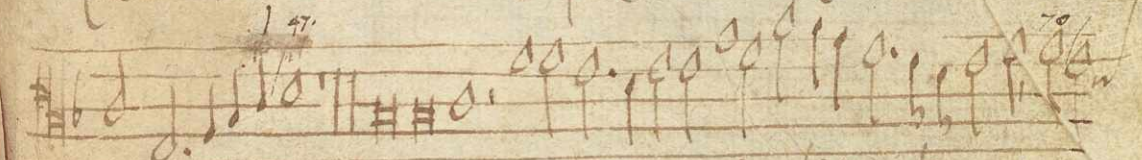 47.
70